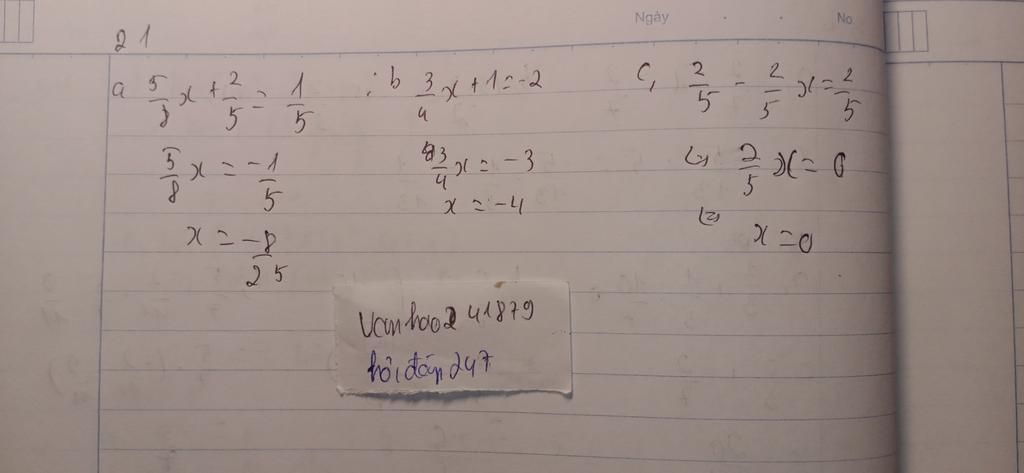 Ngày No
21
a 5/8 x + 2/5 = 1/5
5/8 x = -1/5
x = -8/25
b 3/4 x + 1 = -2
3/4 x = -3
x = -4
C, 2/5 - 2/5 x = 2/5
<=> 2/5 x = 0
<=> x = 0
vanhao241879
hỏi đáp 247